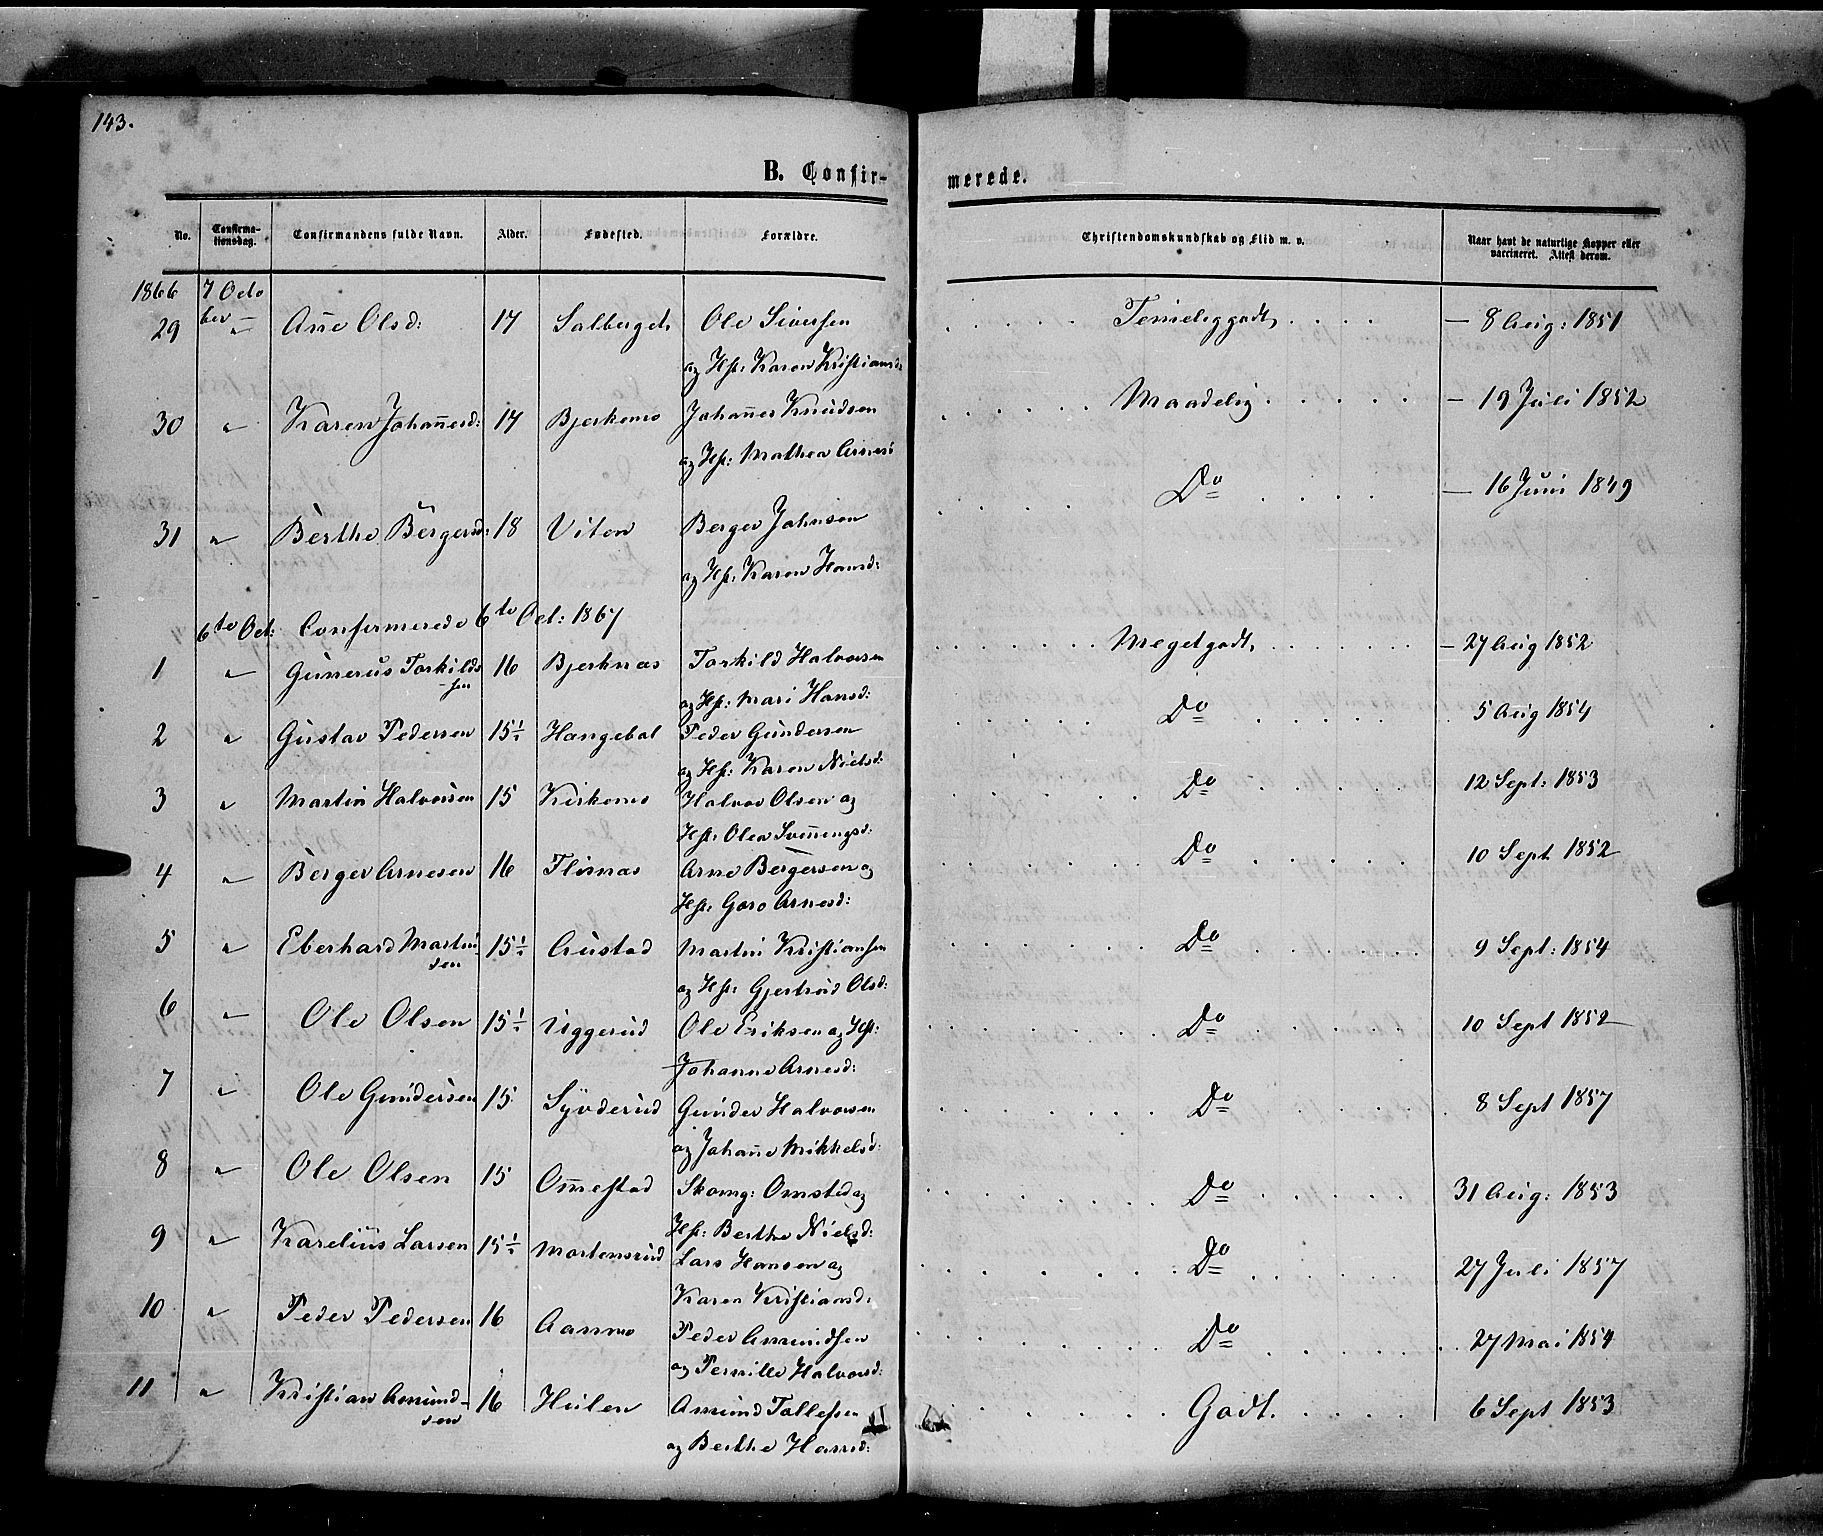 143.
B. Confirmerede.
No. Confirmationsdag. Confirmandens fulde Navn. Alder. Fødested. Forældre. Christendomskundskab og Flid m. v. Naar havt de naturlige Kopper eller vaccineret. Attest derom.
1866 7 Octo
ber —
29 " Anne Olsd: 17 Solberget Ole Siversen Temeliggodt — 8 Aug: 1851
og Hst: Karen Kristiansd:
30 " Karen Johannesd: 17 Bjerkemo Johannes Knudsen Maadelig — 19 Juli 1852
og Hst: Mathea Arnesd
31 " Berthe Bergersd: 18 Viton Berger Johnsen Do — 16 Juni 1849
og Hst: Karen Hansd:
6te Oct: Confirmerede 6te Oct: 1867
1 " Gunerus Torkilds- 16 Bjerknæs Torkild Halvorsen Megetgodt — 27 Aug 1852
sen og Hst: Mari Hansd:
2 " Gustav Pedersen 15½ Hangebøl Peder Gundersen Do 5 Aug 1854
og Hst: Karen Nielsd:
3 " Martin Halvorsen 15 Kirkemo Halvor Olsen og Do 12 Sept: 1853
Hst: Olea Svenningsd:
4 " Berger Arnesen 16 Flisnæs Arne Bergersen og Do 10 Sept 1852
Hst: Goro Arnesd:
5 " Eberhard Martin- 15½ Austad Martin Kristiansen Do 9 Sept: 1854
sen og Hst: Gjertrud Olsd:
6 " Ole Olsen 15½ Uggerud Ole Eriksen og Hst: Do 10 Sept 1852
Johanne Arnesd:
7 " Ole Gundersen 15 Syverud Gunder Halvorsen Do 8 Sept 1857
og Johanne Mikkelsd:
8 " Ole Olsen 15 Ommestad Skomg: Omsted og Do 31 Aug: 1853
Hst: Berthe Nielsd:
9 " Karelius Larsen 15½ Mortensrud Lars Hansen og Do 27 Juli 1857
Karen Kristiansd:
10 " Peder Pedersen 16 Aasmo Peder Amundsen Do 27 Mai 1854
og Pernille Halvorsd:
11 " Kristian Amund- 16 Hulen Amund Tollefsen Godt. 6 Sept 1853
sen og Berthe Hansd: